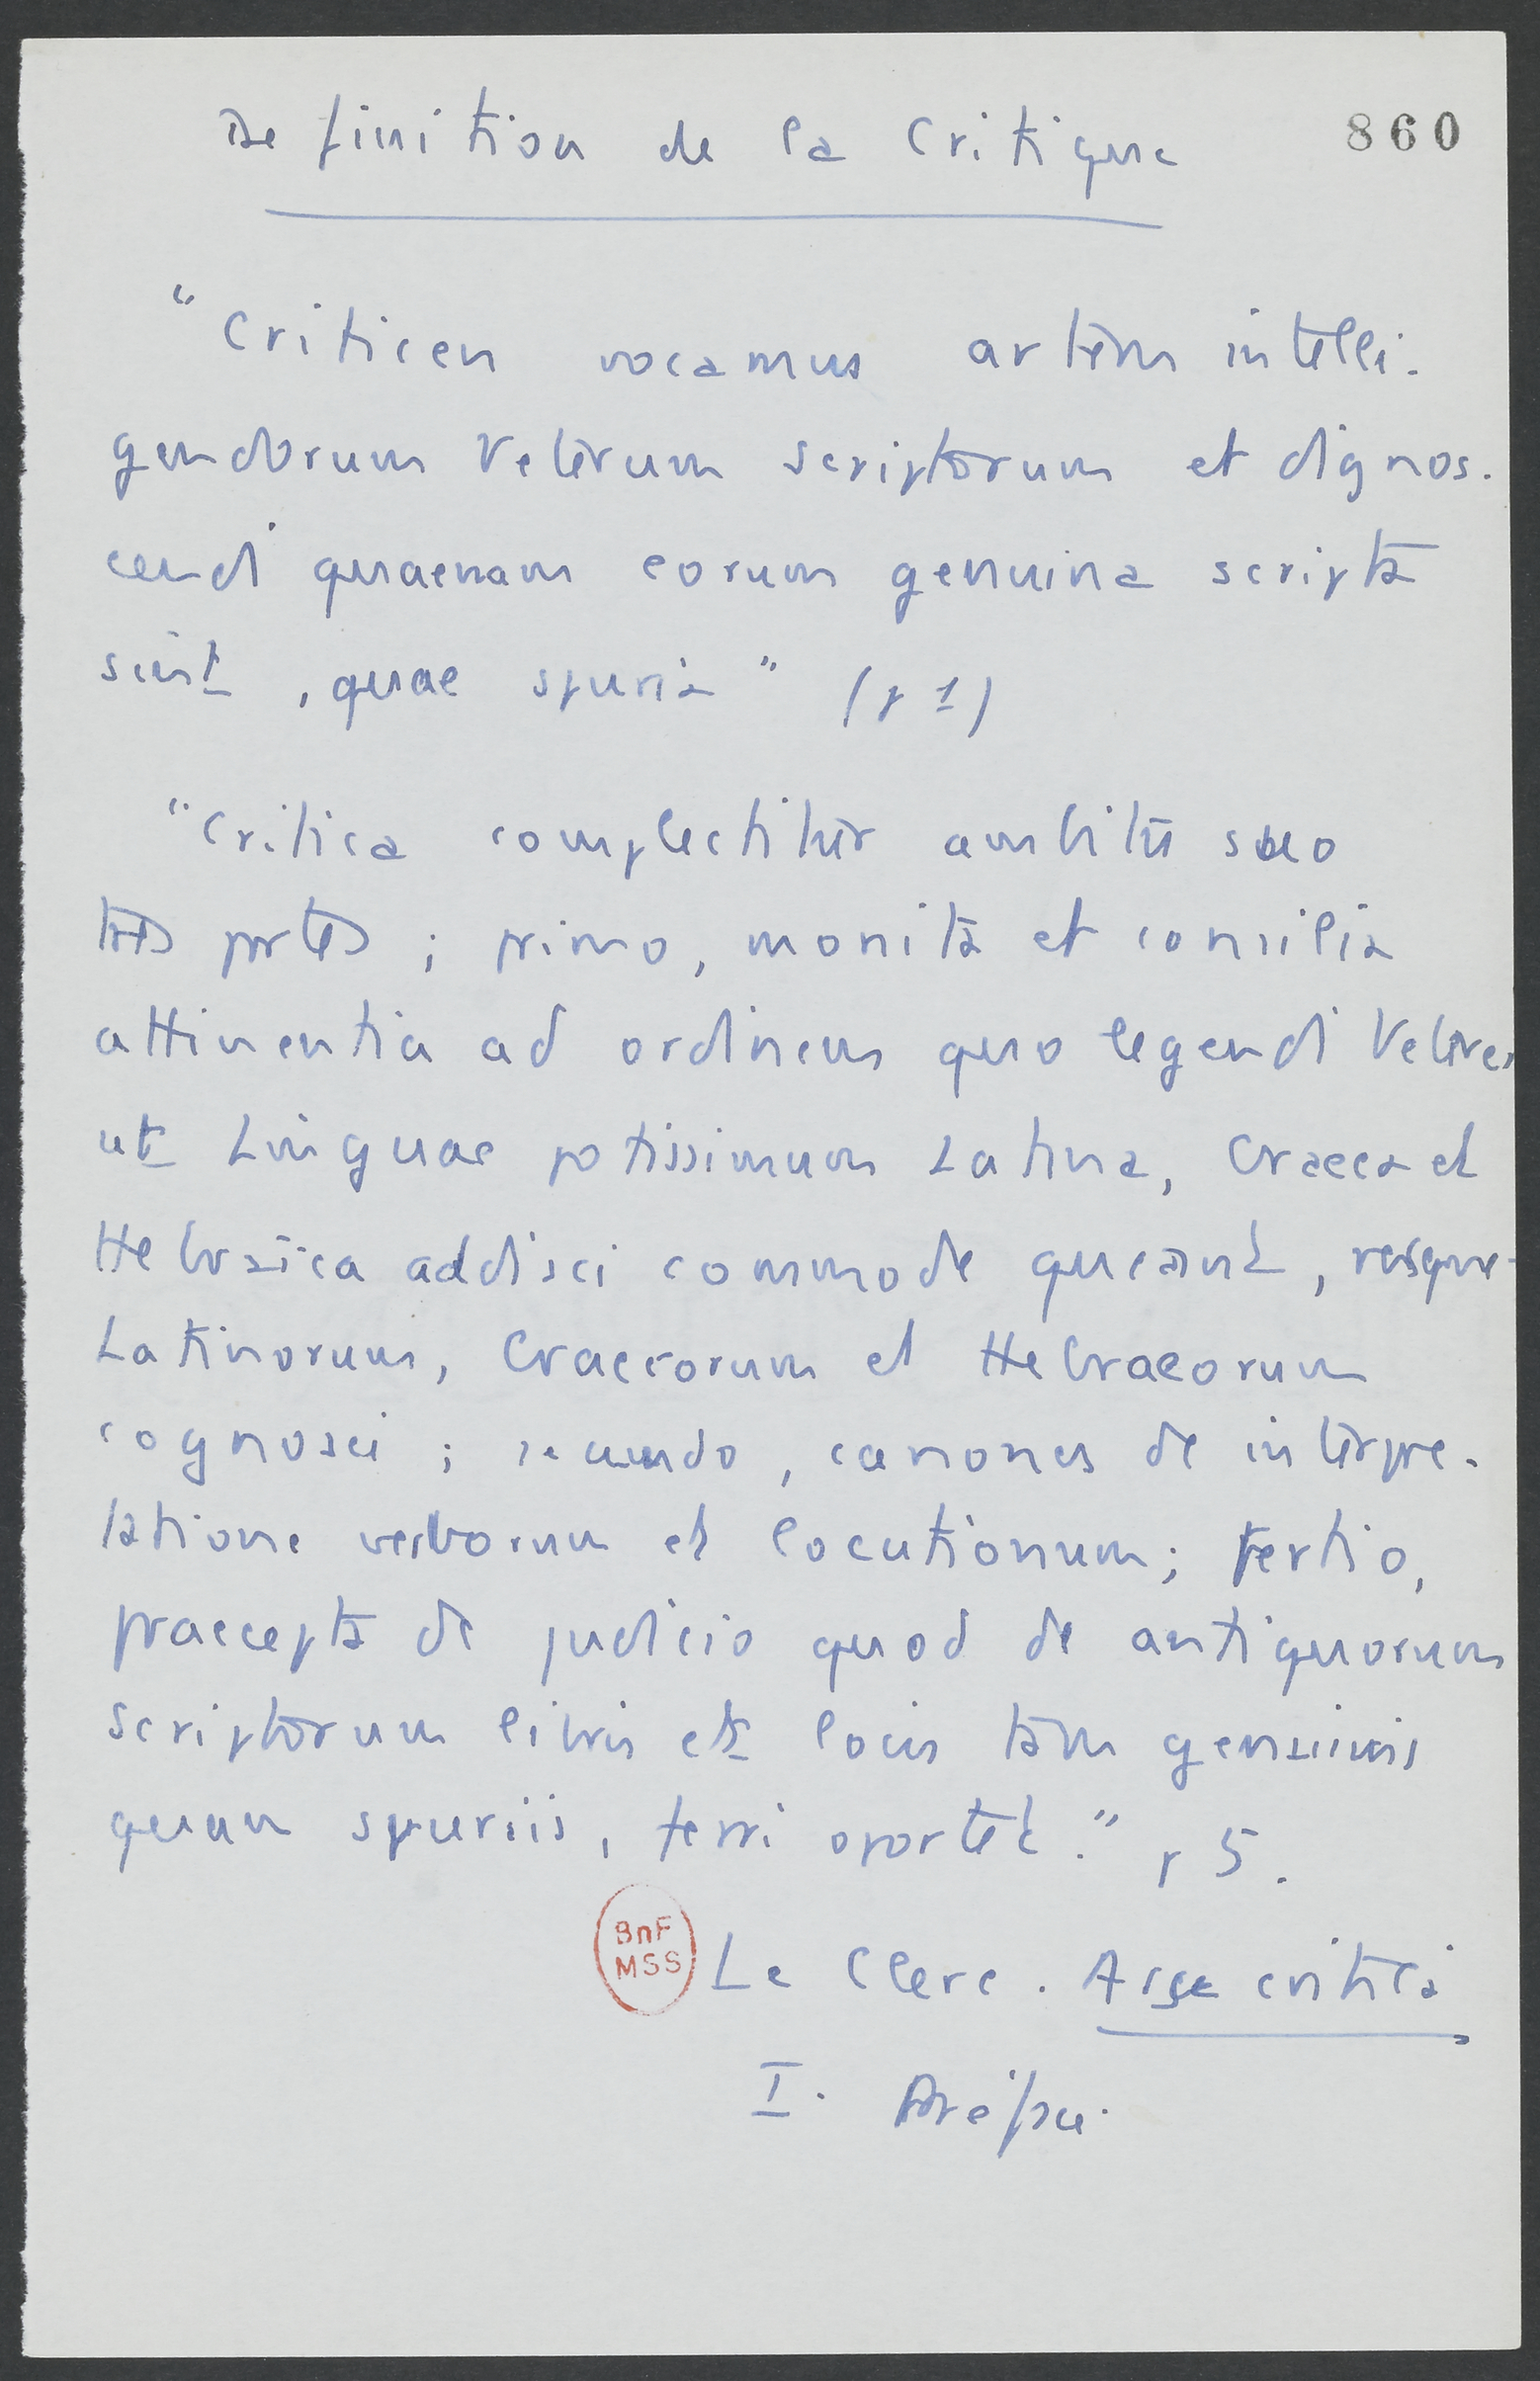 Definition de la Critique
860
"Criticen vocamus artem intelli-
gendorum Veterum scriptorum et dignos-
cendi quaenam eorum genuina scripta
sint, quae spuria" (p 1)
"Critica complectitur ambitu suo
tres partes ; primo, monita et consilia
attinentia ad ordinem quo legendi Veteres
ut Linguae potissimum Latina, Graeca et
Hebraica addisci commode queant, resque
Latinorum, Graecorum et Hebraeorum
cognosci ; secundo, canones de interpre-
tatione verborum et locutionum; tertio,
praecepta de judicio quod de antiquorum
scriptorum libris et locis tam genuinis
quam spuriis, ferri oportet." p 5.
BnF
MSS
Le Clerc. Arse critica
I. Préface.